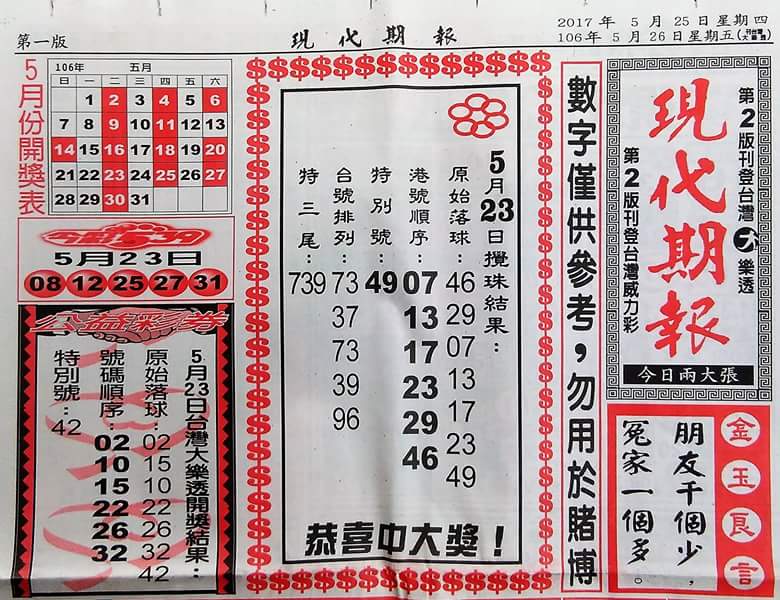 2017年 5月 25日星期四
第一版
現代期報
106年 5月 26日星期五
現代期報
第2版刊登台灣大樂透
第2版刊登台灣威力彩
今日兩大張
金玉良言
朋友千個少，
冤家一個多。
數字僅供參考，勿用於賭博
5月23日攪珠結果：
原始落球：46 29 07 13 17 23 49
港號順序：07 13 17 23 29 46
特別號：49
台號排列：73 37 73 39 96
特三尾：739
恭喜中大獎！
5月份開獎表
106年 五月
日 一 二 三 四 五 六
1 2 3 4 5 6
7 8 9 10 11 12 13
14 15 16 17 18 19 20
21 22 23 24 25 26 27
28 29 30 31
今彩539
5月23日
08 12 25 27 31
公益彩券
5月23日台灣大樂透開獎結果：
原始落球：02 15 10 22 26 32 42
號碼順序：02 10 15 22 26 32
特別號：42